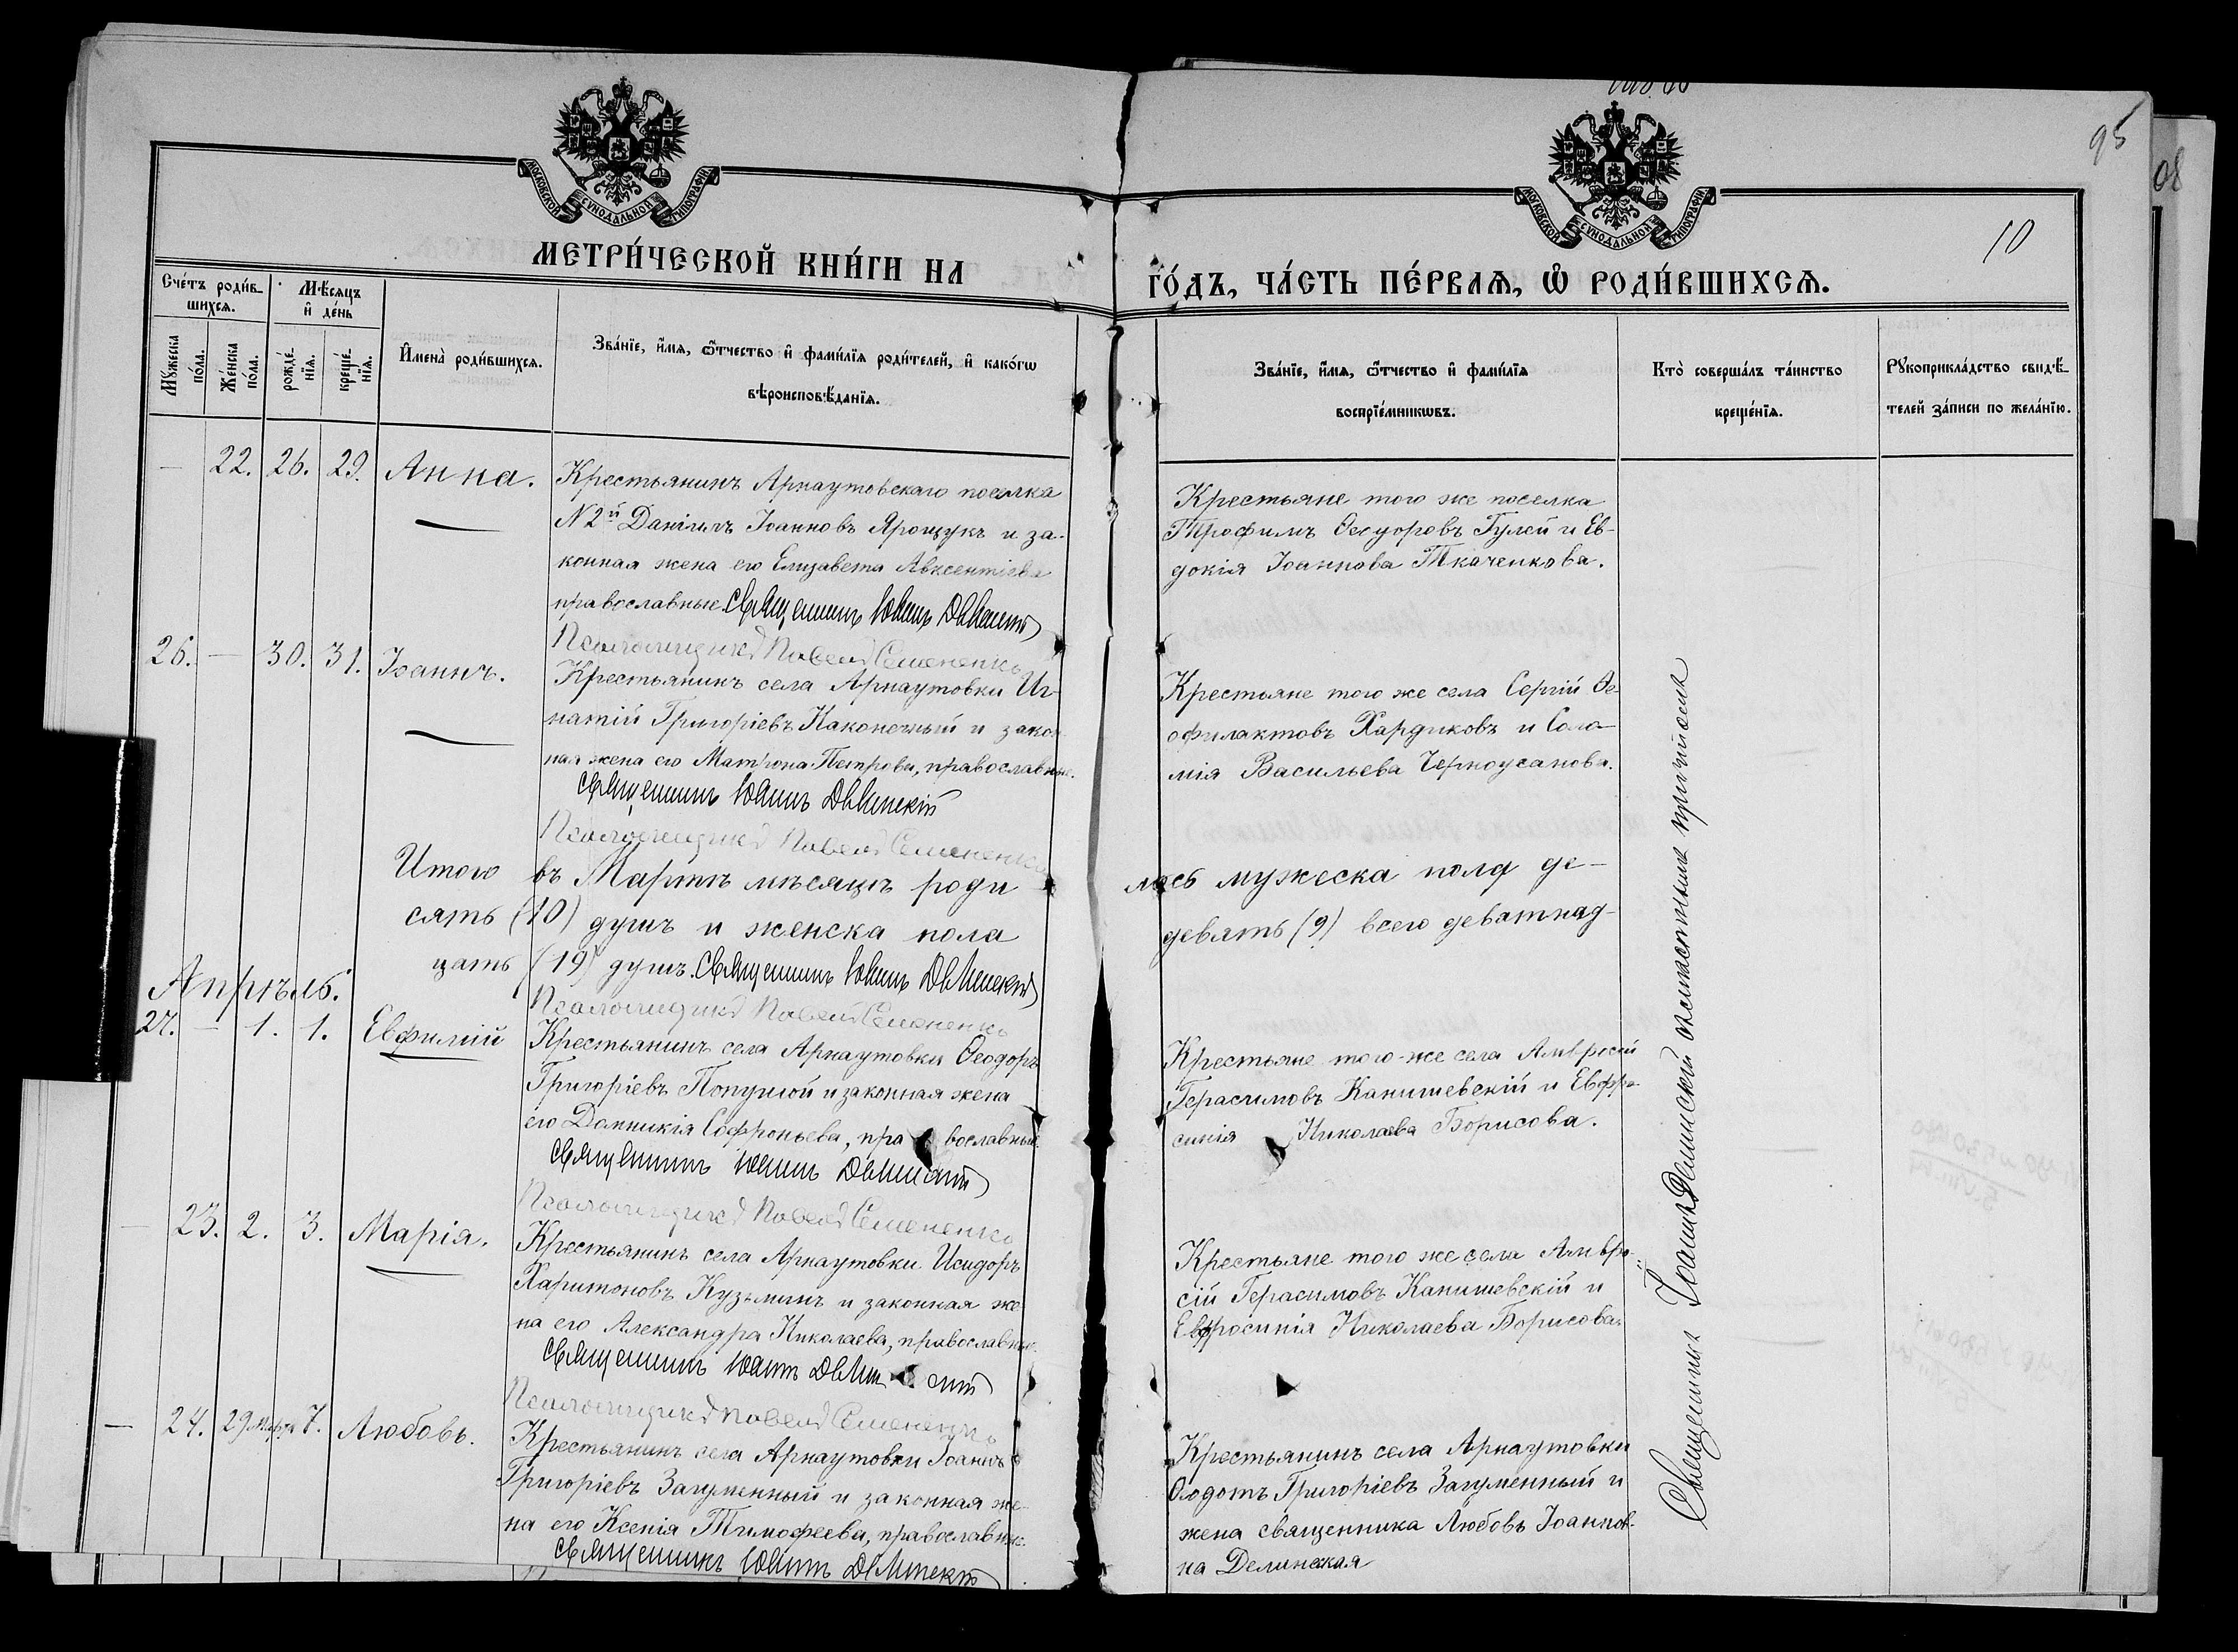 95
08
10
МОСКОВСКОЙ СѴНОДАЛЬНОЙ ТИПОГРАФІИ
МОСКОВСКОЙ СѴНОДАЛЬНОЙ ТИПОГРАФІИ
МЕТРИ́ЧЕСКОЙ КНИ́ГИ НА
ГО́ДЪ, ЧА́СТЬ ПЕ́РВАѦ, Ѡ҆ РОДИ́ВШИХСѦ.
Сче́тъ роди́в-
шихсѧ.
Мѣ́сѧцъ
и҆ де́нь
Мꙋ́жеска
по́ла.
Же́нска
по́ла.
рожде́-
нїѧ.
креще́-
нїѧ.
И҆мена̀ роди́вшихсѧ.
Зва́нїе, и҆́мѧ, ѻ҆́тчество и҆ фами́лїѧ роди́телей, и҆ како́гѡ
вѣроисповѣ́данїѧ.
Зва́нїе, и҆́мѧ, ѻ҆́тчество и҆ фами́лїѧ
воспрїе́мникѡвъ.
Кто̀ соверша́лъ та́инство
креще́нїѧ.
Рꙋкоприкла́дство свидѣ́-
телей за́писи по жела́нїю.
— 22. 26. 29. Анна.
Крестьянинъ Арнаутовскаго поселка
N 2й Даніилъ Іоанновъ Ярощукъ и за-
конная жена его Елизавета Авксентіева
православные. Священникъ Іоаннъ Делинскій
Псаломщикъ Павелъ Семененко
Крестьяне того же поселка
Трофимъ Ѳеодоровъ Гулей и Ев-
докія Іоаннова Ткаченкова.
26. — 30. 31. Іоаннъ.
Крестьянинъ села Арнаутовки Иг-
натій Григоріевъ Наконечный и закон
ная жена его Матрона Петрова, православные.
Священникъ Іоаннъ Делинскій
Псаломщикъ Павелъ Семененко
Крестьяне того же села Сергій Ѳе-
офилактовъ Хардиковъ и Соло-
мія Васильева Черноусанова.
Итого въ Мартѣ мѣсяцѣ роди лось мужеска пола де-
сять (10) душъ и женска пола девять (9) всего девятнад-
цать (19) душъ. Священникъ Іоаннъ Делинскій
Псаломщикъ Павелъ Семененко
Апрѣль.
27. — 1. 1. Евфимій
Крестьянинъ села Арнаутовки Ѳеодоръ
Григоріевъ Попурной и законная жена
его Домникія Софроньева, православные.
Священникъ Іоаннъ Делинскій
Псаломщикъ Павелъ Семененко
Крестьяне того-же села Амвросій
Герасимовъ Канишевскій и Евфро-
синія Николаева Борисова.
— 23. 2. 3. Марія.
Крестьянинъ села Арнаутовки Исидоръ
Харитоновъ Кузьминъ и законная же-
на его Александра Николаева, православные.
Священникъ Іоаннъ Делинскій
Псаломщикъ Павелъ Семененко
Крестьяне того же села Амвро-
сій Герасимовъ Канишевскій и
Евфросинія Николаева Борисова.
— 24. 29 Марта 7. Любовь.
Крестьянинъ села Арнаутовки Іоаннъ
Григоріевъ Загуменный и законная же-
на его Ксенія Тимофеева, православные.
Священникъ Іоаннъ Делинскій
Крестьянинъ села Арнаутовки
Ѳеодотъ Григоріевъ Загуменный и
жена священника Любовь Іоаннов-
на Делинская
Священникъ Іоаннъ Делинскій